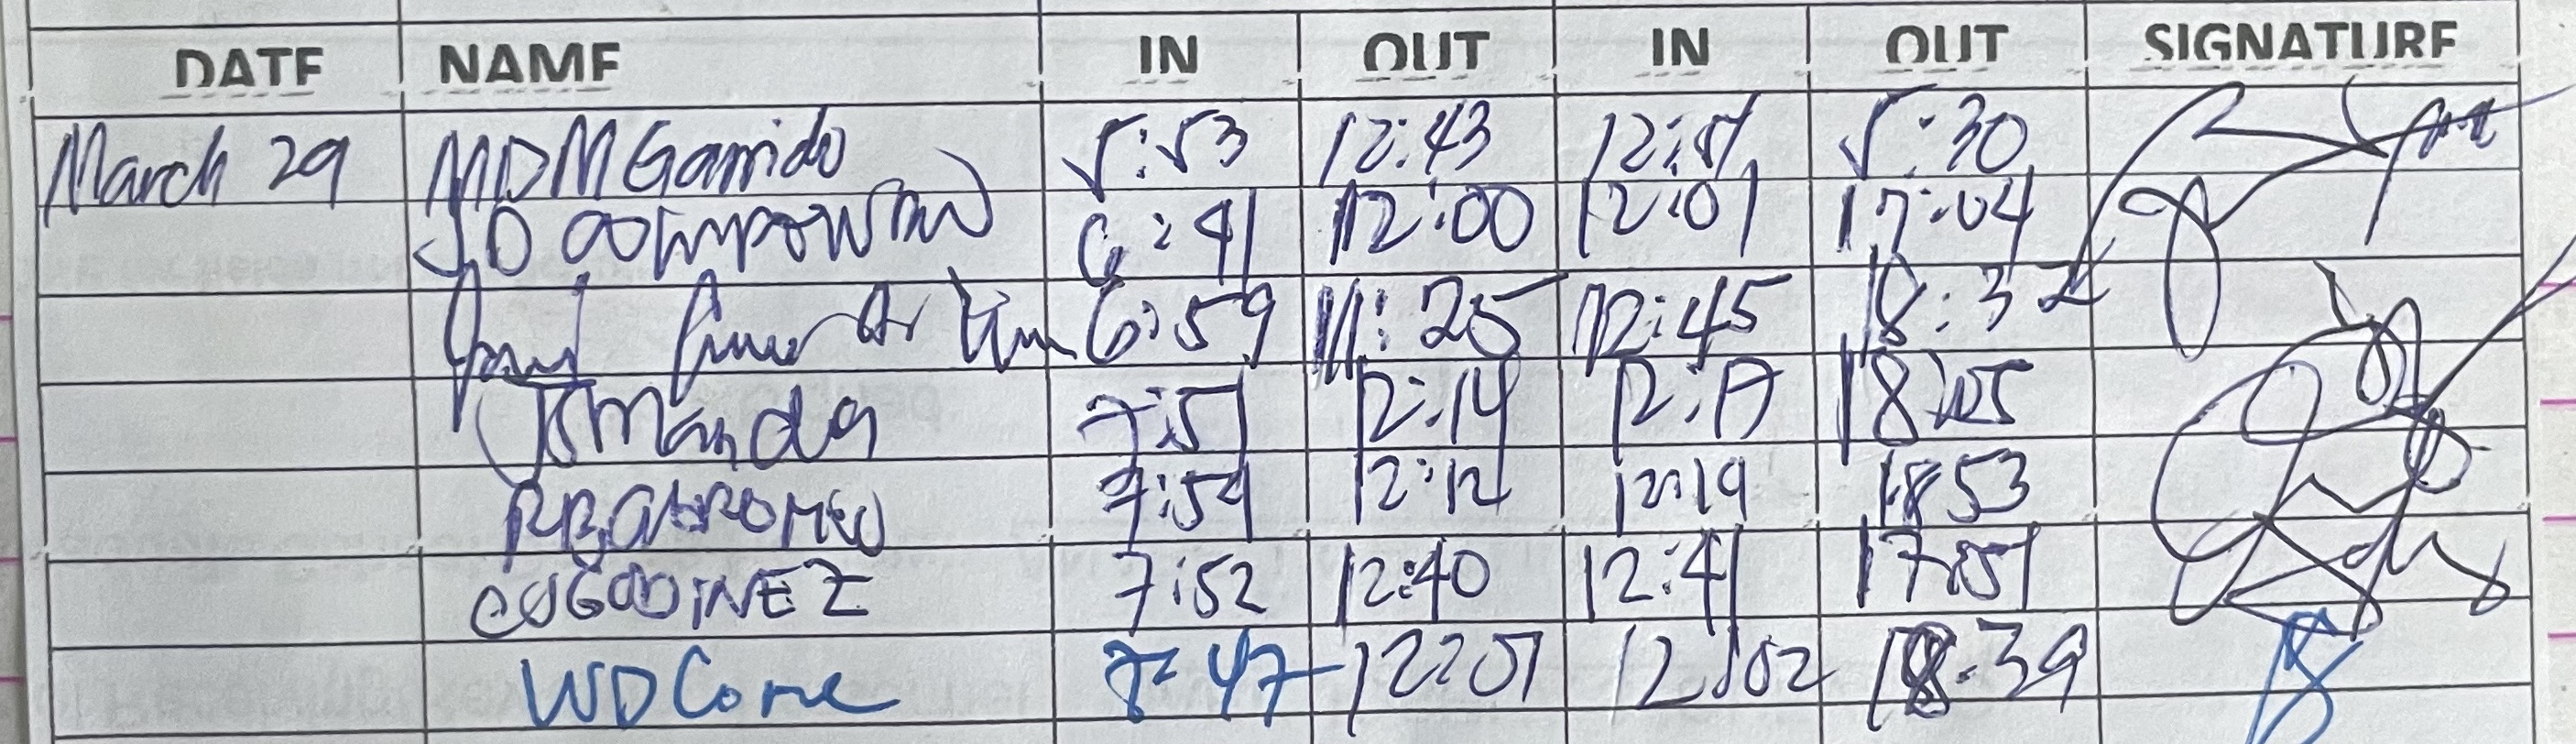 DATE NAME IN OUT IN OUT SIGNATURE
March 29 MDMGarrido 5:53 12:43 12:51 5:30
JD 6:41 12:00 12:01 17:04
6:59 11:25 12:45 18:32
7:51 12:14 12:17 18:05
7:59 12:12 12:19 18:53
GODINEZ 7:52 12:40 12:41 17:51
WDCorne 7:47 12:01 12:02 18:39